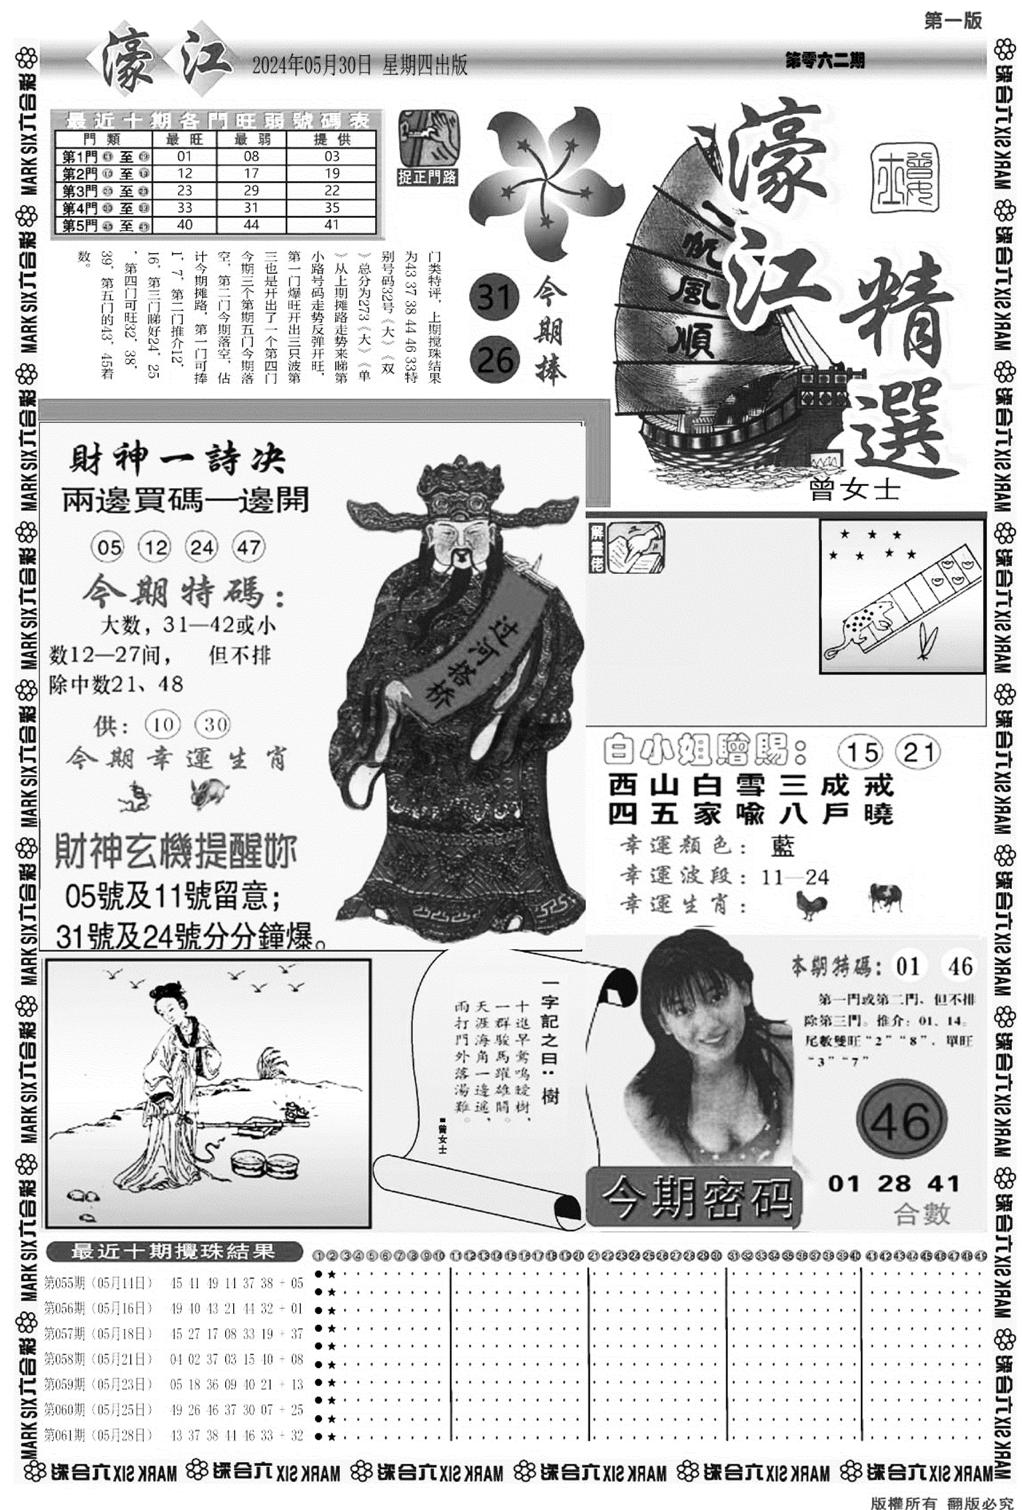 第一版
濠江
2024年05月30日 星期四出版
第零六二期
最近十期各門旺弱號碼表
門類 最旺 最弱 提供
第1門 至 01 08 03
第2門 至 12 17 19
第3門 至 23 29 22
第4門 至 33 31 35
第5門 至 40 44 41
捉正門路
门类特评，上期搅珠结果
为43 37 38 44 46 33特
别号码32号《大》《双
》总分为273《大》《单
》从上期摊路走势来睇第
小路号码走势反弹开旺，
第一门爆旺开出三只波第
三也是开出了一个第四门
今期三个第期五门今期落
空，第二门今期落空，估
计今期摊路，第一门可捧
1，7，第二门推介12，
16，第三门睇好24，25
，第四门可旺32，38，
39，第五门的43，45着
数。
31
26
今期捧
一帆風順
濠江
精選
曾女士
財神一詩决
兩邊買碼一邊開
05 12 24 47
今期特碼：
大数，31—42或小
数12—27间， 但不排
除中数21、48
供： 10 30
今期幸運生肖
財神玄機提醒妳
05號及11號留意；
31號及24號分分鐘爆。
过河搭桥
解畫佬
白小姐贈賜： 15 21
西山白雪三成戒
四五家喻八戶曉
幸運顏色： 藍
幸運波段：11—24
幸運生肖：
一字記之曰：樹
十進早鶯鳴曖樹，
一群駿馬躍雄關。
天涯海角一邊遙，
雨打門外落湯雞。
■曾女士
本期特碼： 01 46
第一門或第二門、但不排
除第三門。推介：01、14。
尾數雙旺“2”“8”，單旺
“3”“7”
46
今期密码
01 28 41
合數
最近十期攪珠結果
①②③④⑤⑥⑦⑧⑨⑩⑪⑫⑬⑭⑮⑯⑰⑱⑲⑳㉑㉒㉓㉔㉕㉖㉗㉘㉙㉚㉛㉜㉝㉞㉟㊱㊲㊳㊴㊵㊶㊷㊸㊹㊺㊻㊼㊽㊾
第055期（05月11日） 45 41 49 11 37 38 + 05
第056期（05月16日） 49 40 43 21 44 32 + 01
第057期（05月18日） 45 27 17 08 33 19 + 37
第058期（05月21日） 04 02 37 03 15 40 + 08
第059期（05月23日） 05 18 36 09 40 21 + 13
第060期（05月25日） 49 26 46 37 30 07 + 25
第061期（05月28日） 43 37 38 44 46 33 + 32
MARK SIX六合彩
版權所有 翻版必究